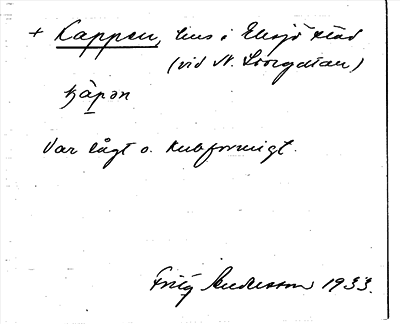 + Kappen, hus i Eksjö stad
(vid N. Storgatan)
kàpən
Var lågt o. kubformigt.
Fritz Andersson 1933.